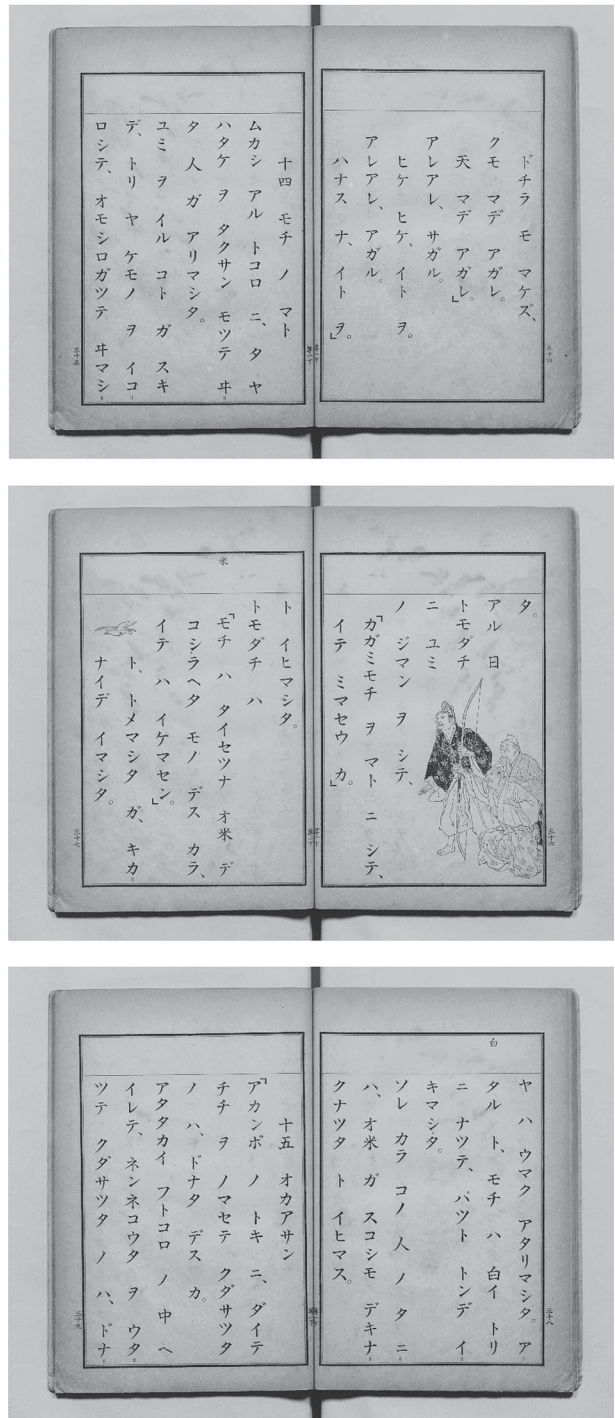 ドチラ モ マケズ、
クモ マデ アガレ。
天 マデ アガレ。」
アレアレ、サガル。
ヒケ ヒケ、イト ヲ。
アレアレ、アガル。
ハナス ナ、イト ヲ。」
三十四
十四 モチ ノ マト
ムカシ アル トコロ ニ、タ ヤ
ハタケ ヲ タクサン モツテ ヰ
タ 人 ガ アリマシタ。
ユミ ヲ イル コト ガ スキ
デ、トリ ヤ ケモノ ヲ イコ
ロシテ、オモシロガツテ ヰマシ
三十五
タ。
アル 日
トモダチ
ニ ユミ
ノ ジマン ヲ シテ、
「カガミモチ ヲ マト ニ シテ、
イテ ミマセウ カ。」
三十六
米
ト イヒマシタ。
トモダチ ハ
「モチ ハ タイセツナ オ米 デ
コシラヘタ モノ デス カラ、
イテ ハ イケマセン。」
ト、トメマシタ ガ、キカ
ナイデ イマシタ。
三十七
白
ヤ ハ ウマク アタリマシタ。ア
タル ト、モチ ハ 白イ トリ
ニ ナツテ、パツト トンデ イ
キマシタ。
ソレ カラ コノ 人 ノ タ ニ
ハ、オ米 ガ スコシモ デキナ
クナツタ ト イヒマス。
三十八
十五 オカアサン
「アカンボ ノ トキ ニ、ダイテ
チチ ヲ ノマセテ クダサツタ
ノ ハ、ドナタ デス カ。
アタタカイ フトコロ ノ 中 ヘ
イレテ、ネンネコウタ ヲ ウタ
ツテ クダサツタ ノ ハ、ドナ
三十九